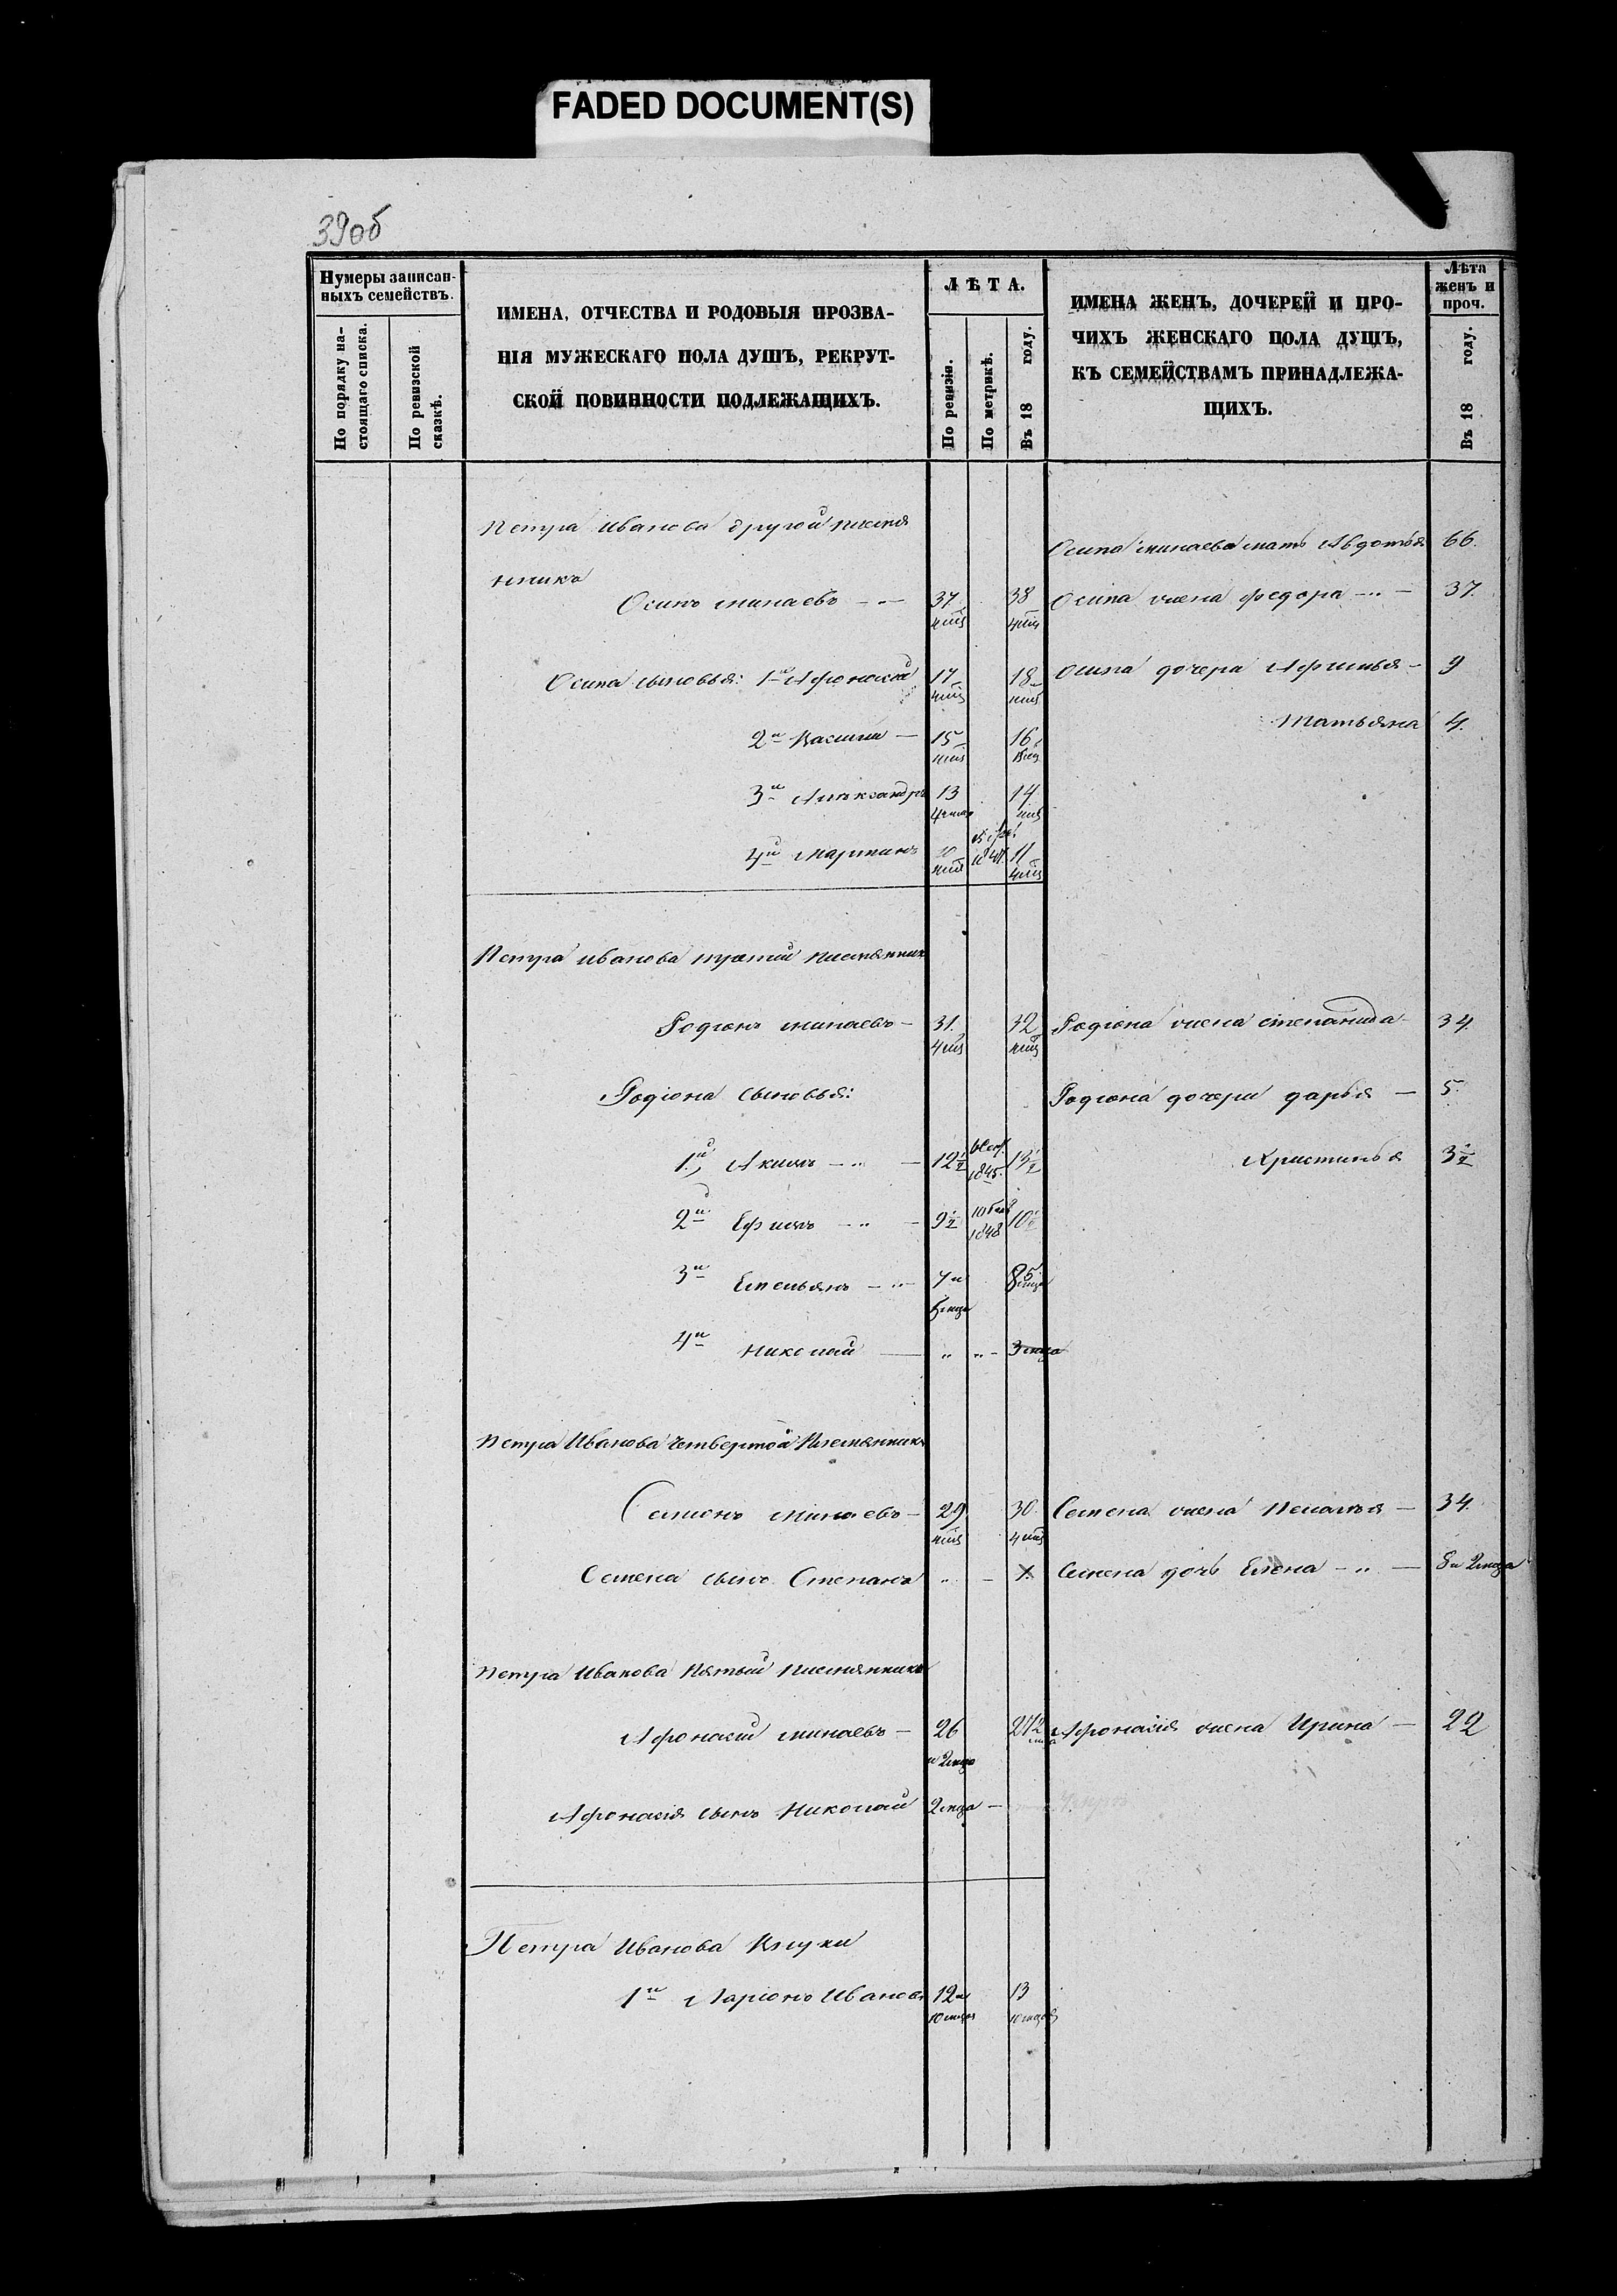 FADED DOCUMENT(S)
39об
Нумеры записан-
ныхъ семействъ.
По порядку на-
стоящаго списка.
По ревизской
сказкѣ.
ИМЕНА, ОТЧЕСТВА И РОДОВЫЯ ПРОЗВА-
НІЯ МУЖЕСКАГО ПОЛА ДУШЪ, РЕКРУТ-
СКОЙ ПОВИННОСТИ ПОДЛЕЖАЩИХЪ.
ЛѢТА.
По ревизіи.
По метрикѣ.
Въ 18 году.
ИМЕНА ЖЕНЪ, ДОЧЕРЕЙ И ПРО-
ЧИХЪ ЖЕНСКАГО ПОЛА ДУШЪ,
КЪ СЕМЕЙСТВАМЪ ПРИНАДЛЕЖА-
ЩИХЪ.
Лѣта
женъ и
проч.
Въ 18 году.
Петра Иванова другой племя
нникъ
Осипа минаева мать Авдотья 66.
Осипъ минаевъ — „ — 37 38 Осипа жена федора — „ — 37.
Осипа сыновья: 1й Афонасій 17 18 Осипа дочери Афимья — 9
2й Василии — 15 16 Татьяна 4.
3й Александръ 13 14
4й Мартинъ 11
Петра Иванова третій племянник
Родіонъ минаевъ — 31. 32 Родіона жена степанида — 34.
Родіона сыновья: Родіона дочери дарья — 5.
1й, Акимъ — „ — 12½ 1845. 13½ Христинья 3½
2й Ефимъ — „ — 9½ 1848 10½
3й Емельянъ — „ — 7 и 8 5
4й Николай — „ „ — 3 мца
Петра Иванова Четвертой Племянникъ
Семионъ Минаевъ — 29 30. Семена жена Пелагея — 34.
Семена сынъ Степанъ „ — Семена дочь Елена — „ — 8 и 2 мца
Петра Иванова Пятый Племянникъ
Афонасій минаевъ — 26 27 2 Афонасія жена Ирина — 22
и 2 мца
Афонасія сынъ Николай 2 мца —
Петра Иванова Внуки
1й Ларіонъ Ивановъ 12 и 13
10 мцов 10 мцов